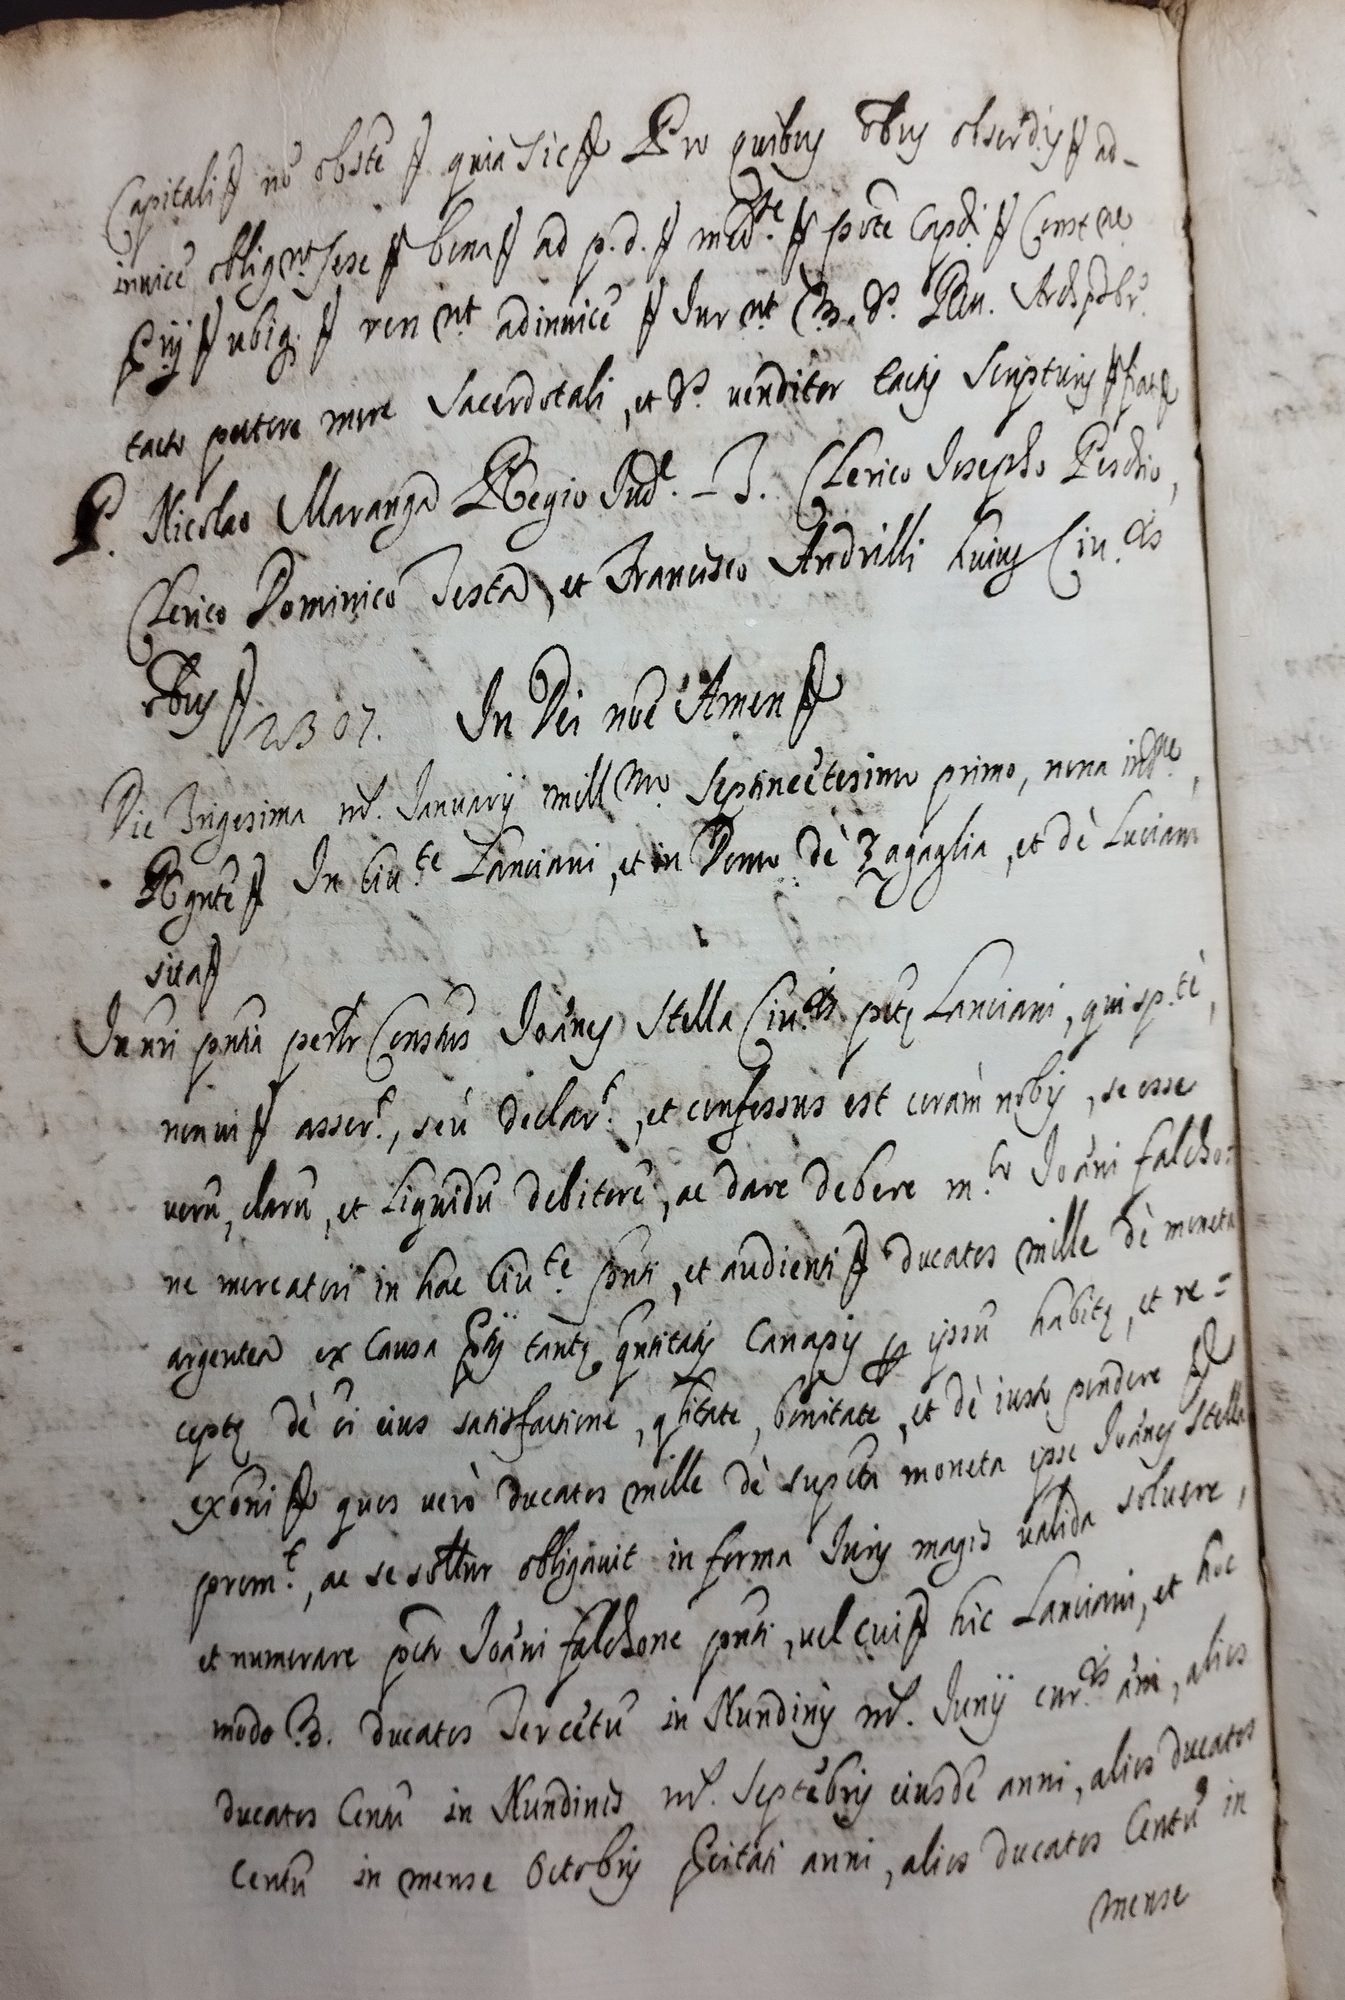 Capitali nõ obstẽ quia sic Pro quibus õbus obserdis ad-
invicẽ oblignt sese bona ad p.d. medte potẽ Capdi Constne
prij ubiq. ren nt adinvicẽ Jur nt B. D. Archipbr
tacto pectore more sacerdotali, et D. venditor tactis scripturis fiat
P. Nicolao Maranga Regio Jude. - T. Clerico Josepho Peschio,
Clerico Dominico Testa, et Francisco Andrilli huius Ciu.tis
õbus
2307. In Dei noẽ Amen
Die Trigesima ms. Januarij mill mo. septincẽtesimo primo, nona indne,
Rgnte In Ciu.te Lanciani, et in Domo dè Zagaglia, et dè Luciani
sita
In nri pñtia persr Consttus Joãnes Stella Ciu.tis pttę Lanciani, qui sp.tè,
non vi asser.t, seù declar.t, et confessus est coràm nobis, se esse
verũ, clarũ, et liquidũ debitorẽ, ac dare debere m.co Joãni falcho=
ne mercatori in hac Ciu.te pñti, et audienti ducatos mille dè moneta
argentea ex causa prij tantę qntitatis Canapis p ipsũ habitę, et re=
ceptę dè oi eius satisfactione, qlitate, bonitate, et dè iusto pondere
ex oñi quos verò ducatos mille dè supcta moneta ipse Joãnes Stella
prom.t, ac se sollr obligavit in forma Juris magis valida solvere,
et numerare pcto Joãni falchone pñti, vel cui hìc Lanciani, et hoc
modo V3. ducatos Tercẽtũ in Nundinis ms. Junij cur.tis ãni, alios
ducatos Centũ in Nundinis ms. Septẽbris eiusdẽ anni, alios ducatos
Centũ in mense Octobris pcitati anni, alios ducatos Centũ in
mense